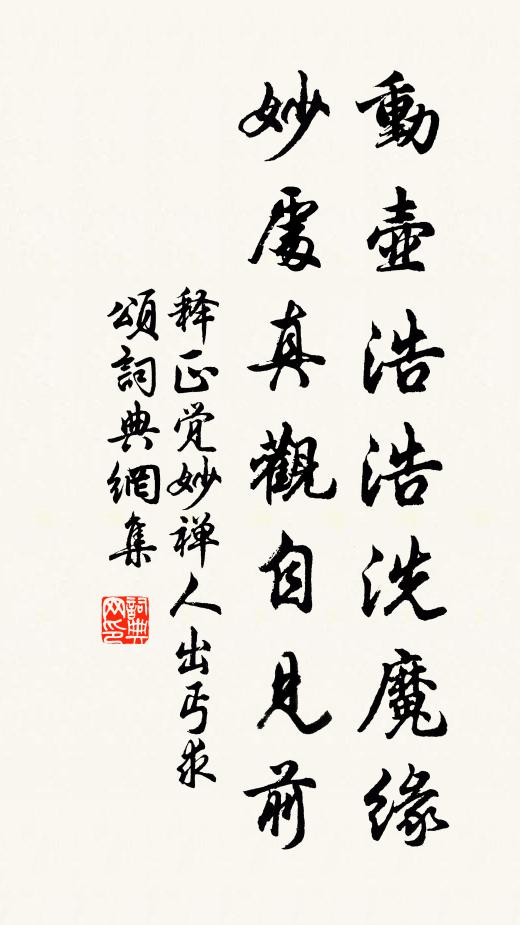 動壺浩浩洗魔緣
妙處真觀自見前
释正觉妙禅人出丐求
頌詞典網集
詞典
网印